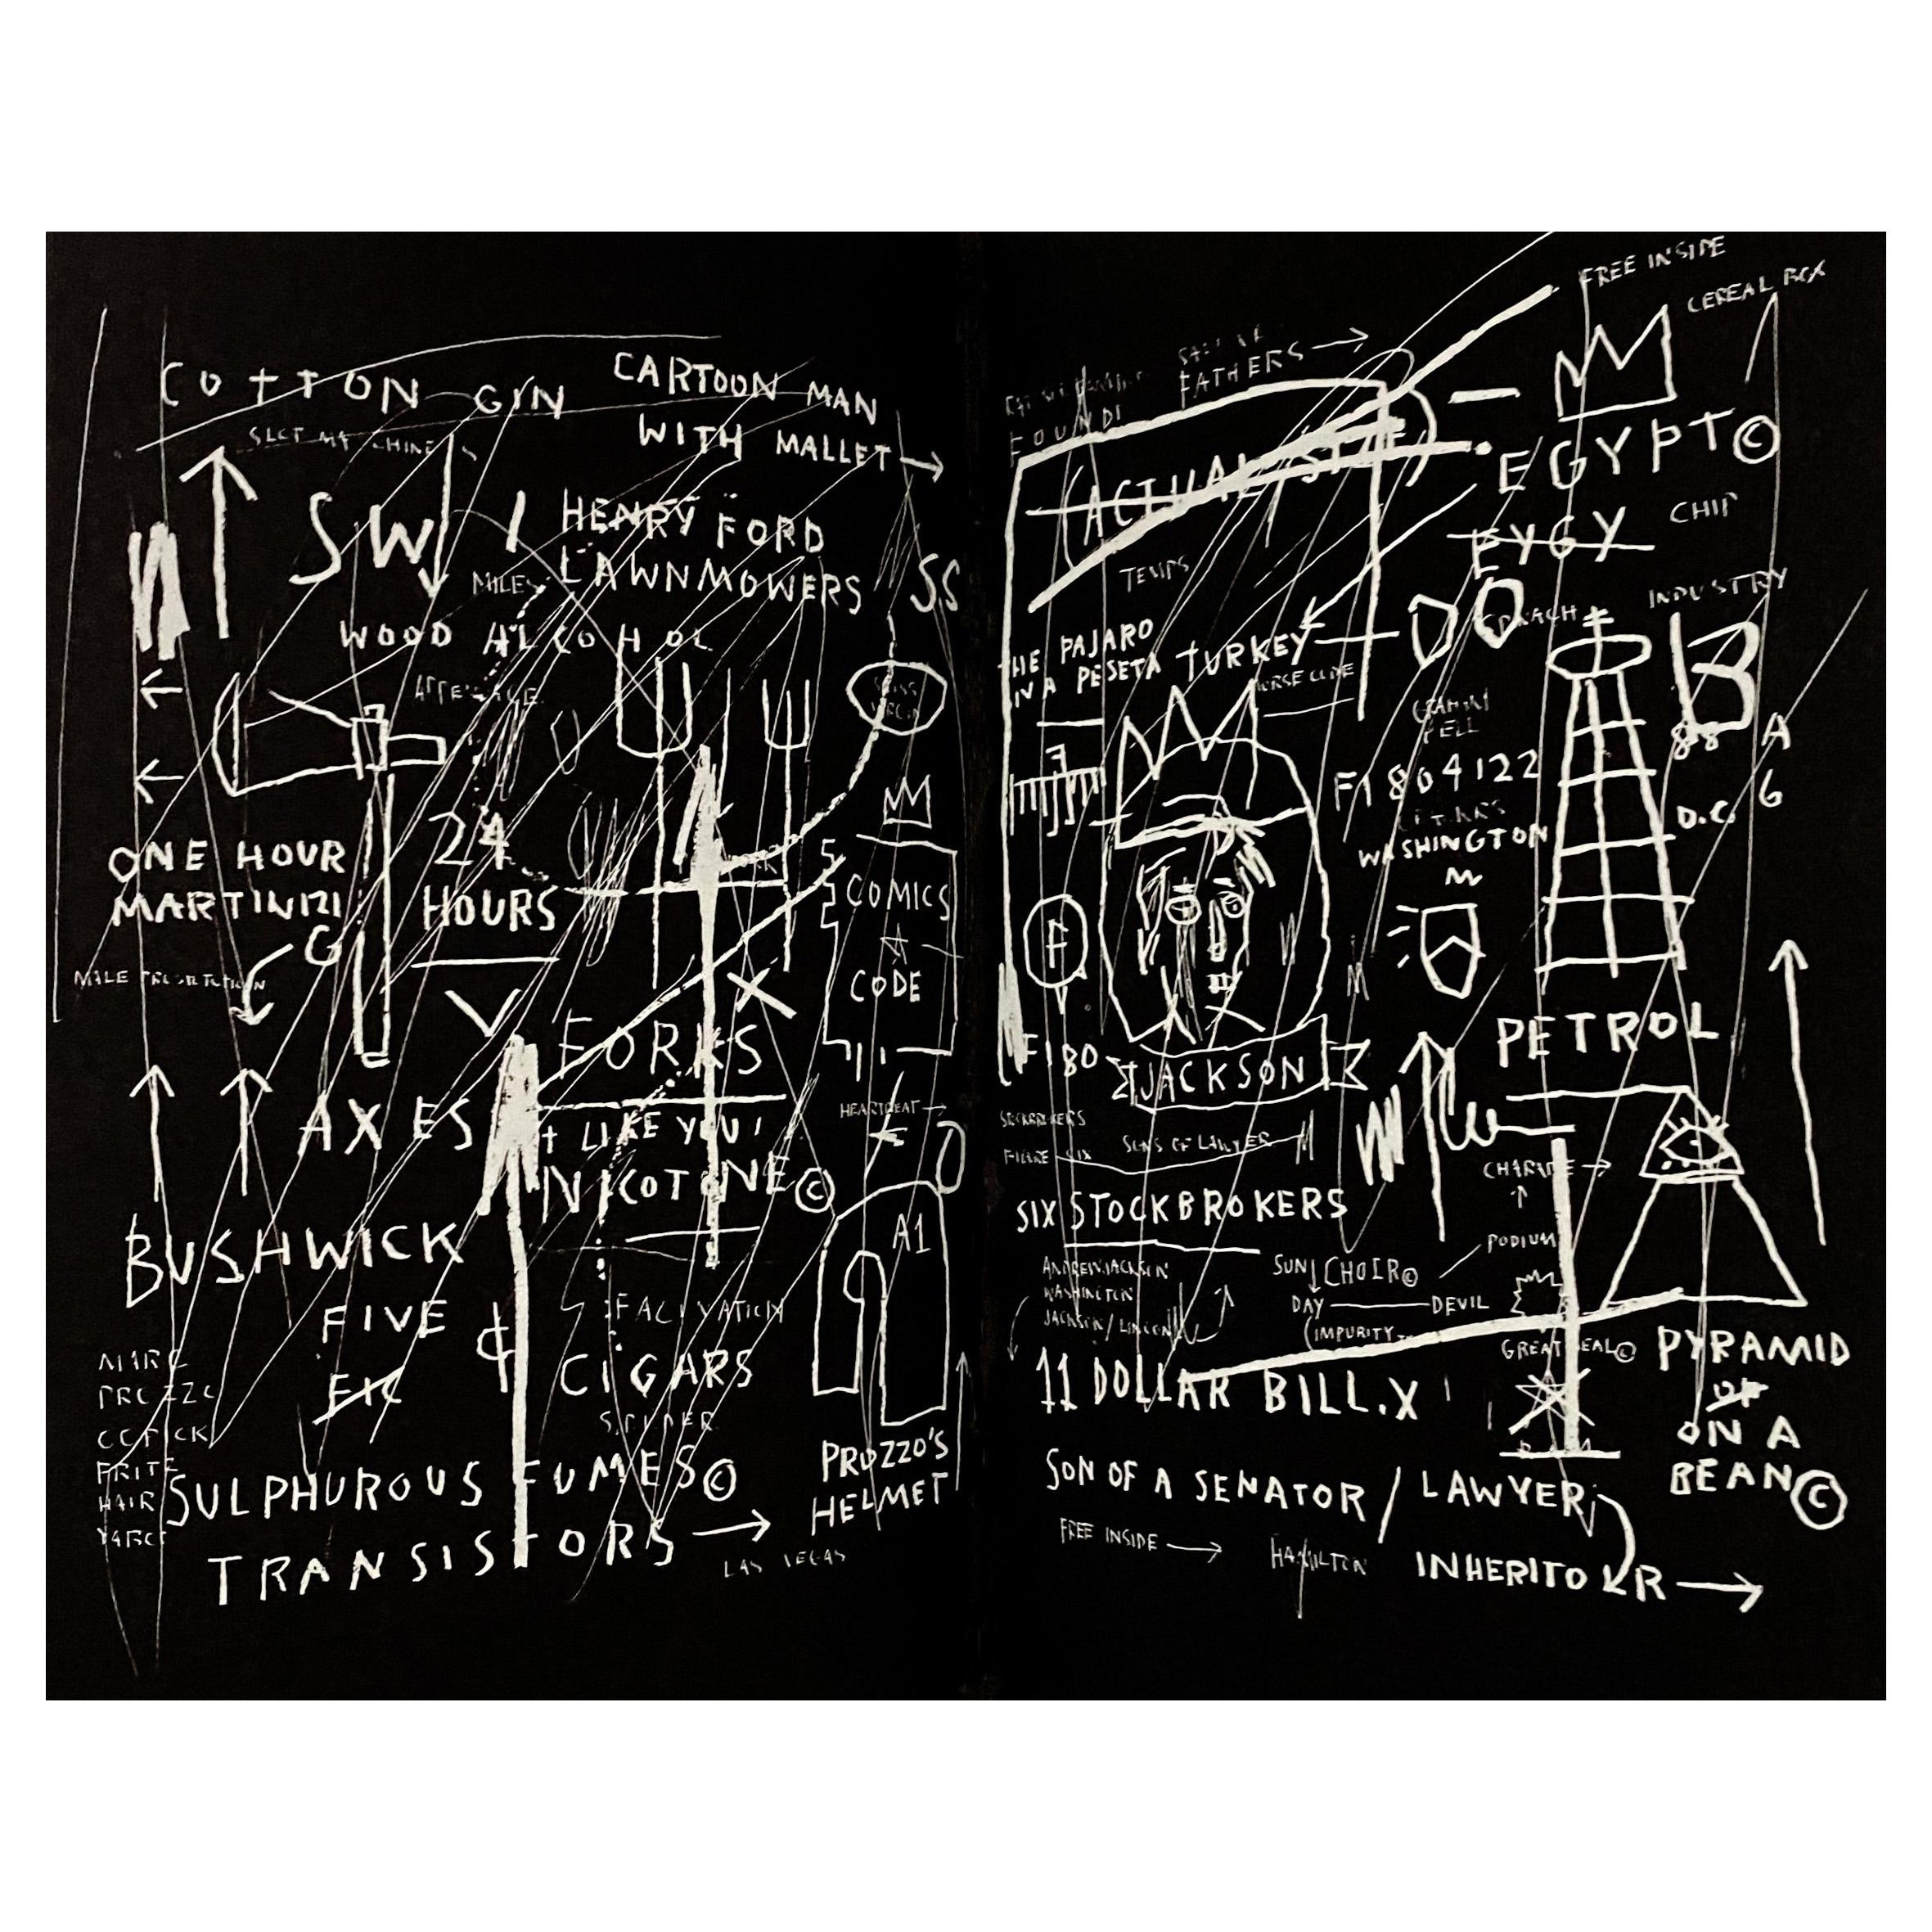 COTTON GIN
CARTOON MAN
WITH MALLET
SW
HENRY FORD
LAWNMOWERS
MILES
SS
WOOD ALCOHOL
ONE HOUR
MARTINIZI
G
24
HOURS
5
COMICS
CODE
V
X
FORKS
AXES
HEARTBEAT
+ LIKE YOU!
NICOTINE©
A1
BUSHWICK
FIVE
&
CIGARS
MARC
HAIR
SULPHUROUS FUMES©
TRANSISTORS
LAS VEGAS
PROZZO'S
HELMET
FREE INSIDE
CEREAL BOX
FATHERS
FOUNDI
EGYPT©
EYGY
CHIP
TEMPS
INDUSTRY
THE PAJARO
IN A PESETA TURKEY
MORSE CODE
B
88
A
6
F1804122
D.C.
WASHINGTON
F
F180
JACKSON
PETROL
STOCKBROKERS
SONS OF LAWYER
FIGURE SIX
CHARADE
SIX STOCKBROKERS
ANDREW JACKSON
WASHINGTON
JACKSON / LINCOLN
SUN CHOIR©
PODIUM
DAY
DEVIL
IMPURITY
11 DOLLAR BILL.X
GREAT SEAL©
PYRAMID
OF
ON A
BEAN©
SON OF A SENATOR / LAWYER
FREE INSIDE
HAMILTON
INHERITOR